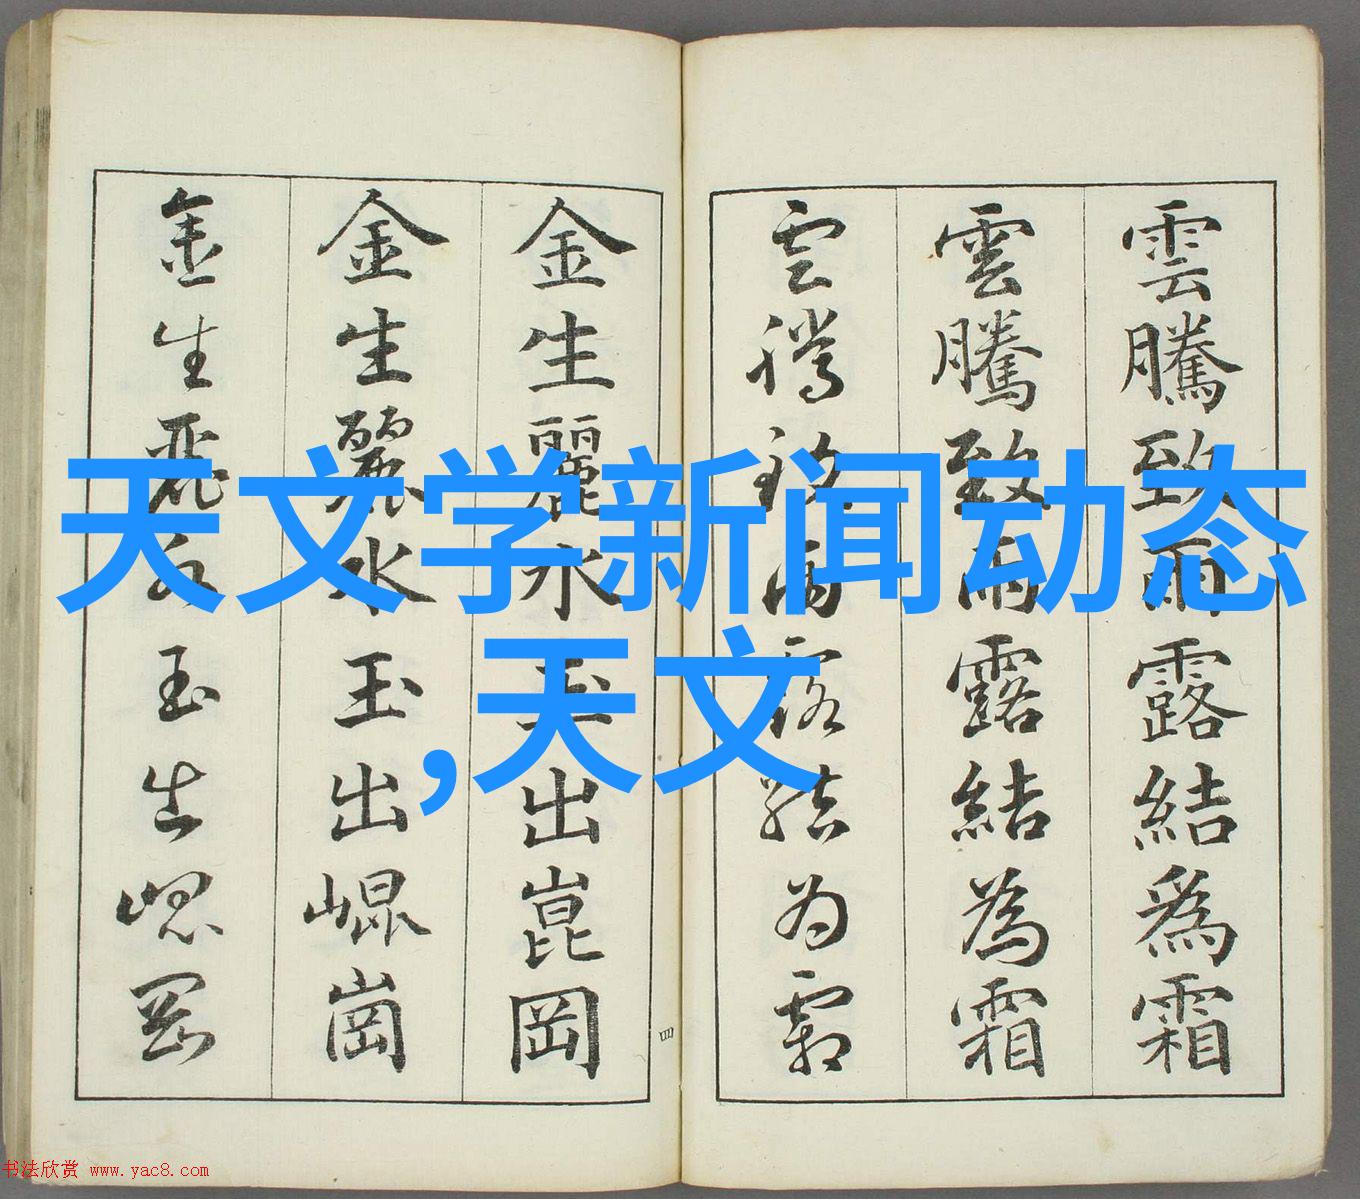 雲騰致雨露結爲霜
雲騰致雨露結為霜
雲騰致雨露結為霜
金生麗水玉出崑岡
金生麗水玉出崐崗
金生麗水玉出崐岡
四
天文学新闻动态
,天文
书法欣赏 www.yac8.com